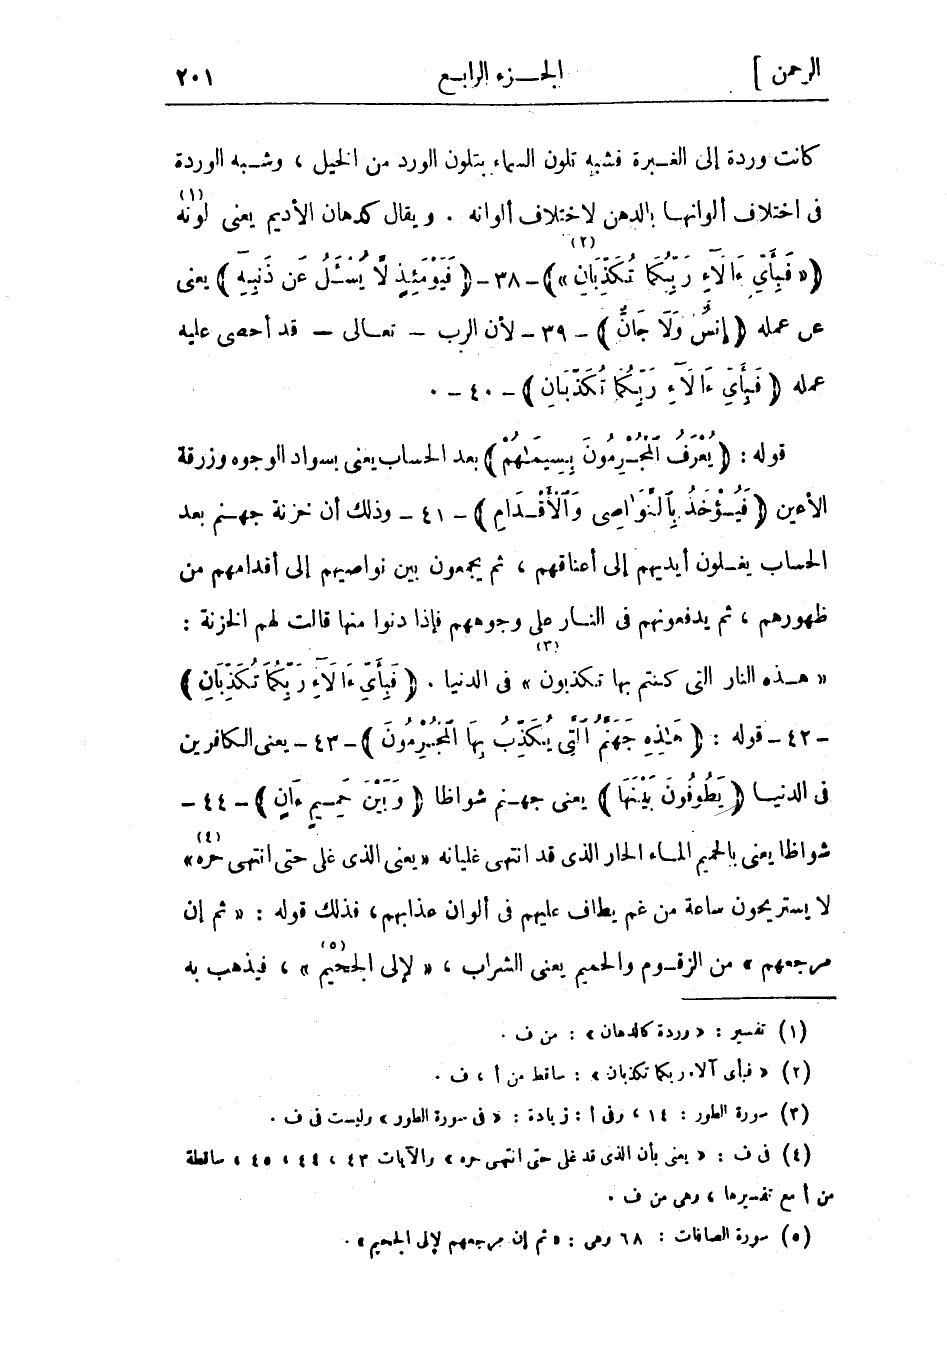 الرحمن ] الجـــزء الرابـع ٢٠١
كانت وردة إلى الغـبرة فشبه تلون السماء بتلون الورد من الخيل ، وشـبه الوردة
فى اختلاف ألوانهـا بالدهن لاختلاف ألوانه . ويقال كدهان الأديم يعنى لونه (١)
﴿ « فَبِأَىِّ ءَالَآءِ رَبِّكُمَا تُكَذِّبَانِ » (٢) ﴾ ـ ٣٨ ـ ﴿ فَيَوْمَئِذٍ لَّا يُسْـَٔلُ عَن ذَنبِهِ ﴾ يعنى
عن عمله ﴿ إِنسٌ وَلَا جَانٌّ ﴾ ـ ٣٩ ـ لأن الرب — تعـالى — قد أحصى عليه
عمله ﴿ فَبِأَىِّ ءَالَآءِ رَبِّكُمَا تُكَذِّبَانِ ﴾ ـ ٤٠ ـ .
قوله : ﴿ يُعْرَفُ ٱلْمُجْرِمُونَ بِسِيمَـٰهُمْ ﴾ بعد الحساب يعنى بسواد الوجوه وزرقة
الأعين ﴿ فَيُـؤْخَذُ بِٱلنَّوَاصِى وَٱلْأَقْـدَامِ ﴾ ـ ٤١ ـ وذلك أن خزنة جهـنم بعد
الحساب يغـلون أيديهم إلى أعناقهم ، ثم يجمعون بين نواصيهم إلى أقدامهم من
ظهورهم ، ثم يدفعونهم فى النـار على وجوههم فإذا دنوا منها قالت لهم الخزنة :
« هـذه النار التى كنتم بها تكذبون » (٣) فى الدنيا . ﴿ فَبِأَىِّ ءَالَآءِ رَبِّكُمَا تُكَذِّبَانِ ﴾
ـ ٤٢ ـ قوله : ﴿ هَـٰذِهِ جَهَنَّمُ ٱلَّتِى يُكَذِّبُ بِهَا ٱلْمُجْـرِمُونَ ﴾ ـ ٤٣ ـ يعنى الكافرين
فى الدنيـا ﴿ يَطُوفُونَ بَيْنَهَا ﴾ يعنى جهـنم شواظا ﴿ وَبَيْنَ حَمِـيمٍ ءَانٍ ﴾ ـ ٤٤ ـ
شواظا يعنى بالحميم المـاء الحار الذى قد انتهى غليانه « يعنى الذى غلى حتى انتهى حره » (٤)
لا يستريحون ساعة من غم يطاف عليهم فى ألوان عذابهم ، فذلك قوله : « ثم إن
مرجعهم » من الزقـوم والحميم يعنى الشراب ، « لإلى الجحيم » (٥) ، فيذهب به
(١) تفسير : « وردة كالدهان » : من ف .
(٢) « فبأى آلاء ربكما تكذبان » : ساقط من أ ، ف .
(٣) سورة الطور : ١٤ ، وفى أ : زيادة : « فى سورة الطور » وليست فى ف .
(٤) فى ف : « يعنى بأن الذى قد غلى حتى انتهى حره » والآيات ٤٣ ، ٤٤ ، ٤٥ ، ساقطة
من أ مع تفسيرها ، وهى من ف .
(٥) سورة الصافات : ٦٨ وهى : « ثم إن مرجعهم لإلى الجحيم » .